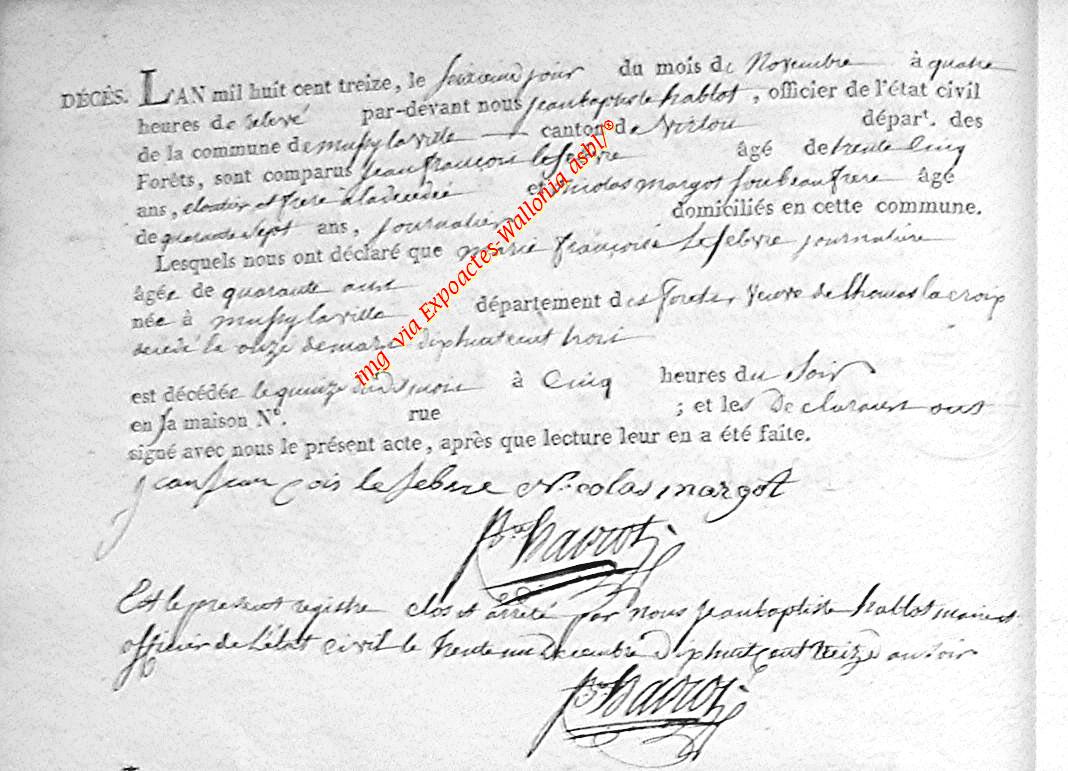 DÉCÈS. L'AN mil huit cent treize, le seizieme jour du mois de Novembre à quatre
heures de relevé par-devant nous jean baptiste hablot, officier de l'état civil
de la commune de mussy la ville canton de Virton départ. des
Forêts, sont comparus jean françois lefebvre âgé de trente Cinq
ans, cloutier et frere à la decedée et nicolas margot son beau frere âgé
de quarante sept ans, journalier domiciliés en cette commune.
Lesquels nous ont déclaré que marie françoise Lefebvre journaliere
âgée de quarante ans
née à mussy la ville département des forets, veuve de thomas la croix
decedé le onze de mars dix huit cent trois
est décédée le quinze du dit mois à Cinq heures du Soir
en sa maison N°. rue ; et les Declarants ont
signé avec nous le présent acte, après que lecture leur en a été faite.
jean françois le febvre Nicolas margot
Est le present registre clos et arreté par nous jean baptiste hablot maire et
officier de L'état civil le trente un Decembre dix huit Cent treize au soir
img via Expoactes-Wallonia asbl/©